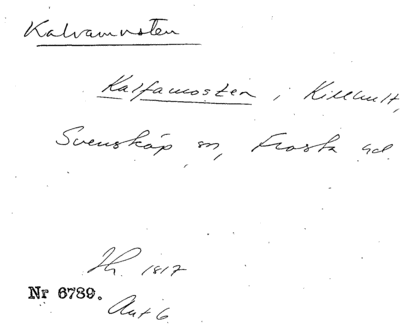 Kalvamosten
Kalfamosten, Killhult,
Svensköp sn, Frosta hd.
Th. 1817
Nr 6789.
Aut 6